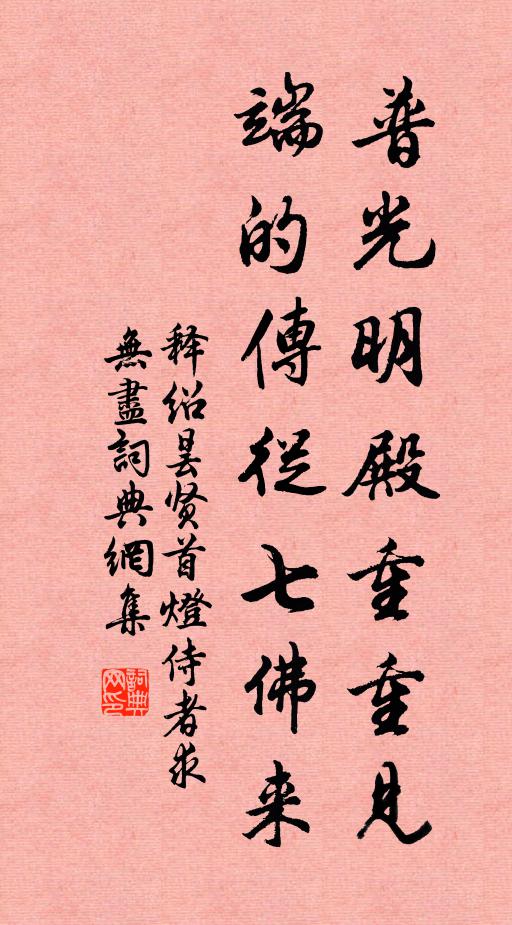 普光明殿重重見
端的傳從七佛来
释绍昙贤首燈侍者求
無盡詞典網集
詞典網印